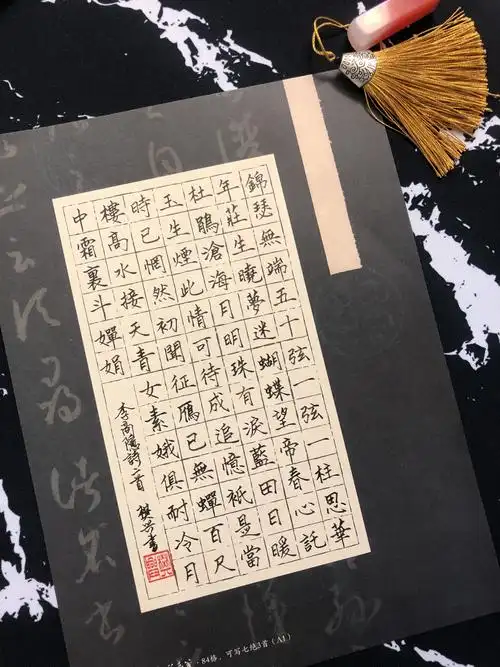 錦瑟無端五十弦一弦一柱思華
年莊生曉夢迷蝴蝶望帝春心託
杜鵑滄海月明珠有淚藍田日暖
玉生煙此情可待成追憶祇是當
時已惘然初聞征鴈已無蟬百尺
樓高水接天青女素娥俱耐冷月
中霜裏斗嬋娟
李商隱詩二首
書
84格，可写七绝3首（A1）